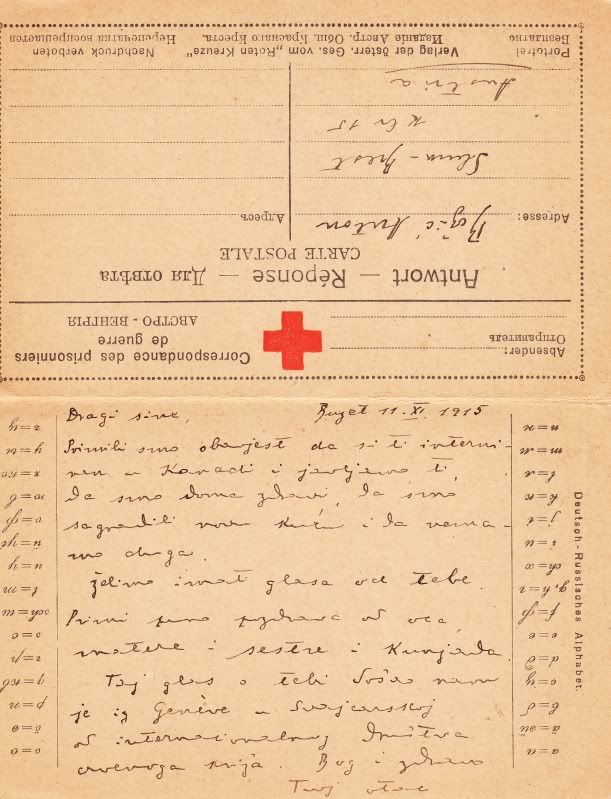 Portofrei
Безплатно
Verlag der österr. Ges. vom „Roten Kreuze"
Изданіе Австр. Общ. Краснаго Креста.
Nachdruck verboten
Перепечатка воспрещается
Antwort — Réponse — Для отвѣта
CARTE POSTALE
Adresse:
Адресъ
Božić Anton
Austria
Absender:
Отправитель
Correspondance des prisonniers
de guerre
АВСТРО - ВЕНГРІЯ
Dragi sine, Buzet 11. XI. 1915
Primili smo obavjest da si ti interni-
ran u Kanadi i javljamo ti,
da smo doma zdravi, da smo
sagradili novu kuću i da nema-
mo druga.
Želimo imat glasa od tebe.
Primi puno pozdrava od oca,
matere i sestre i Kunjada.
Taj glas o tebi došao nam
je iz Genève u Svajcarskoj
od internacionalnog Društva
crvenoga križa. Bog i zdravo
Tvoj otac
Deutsch - Russisches Alphabet.